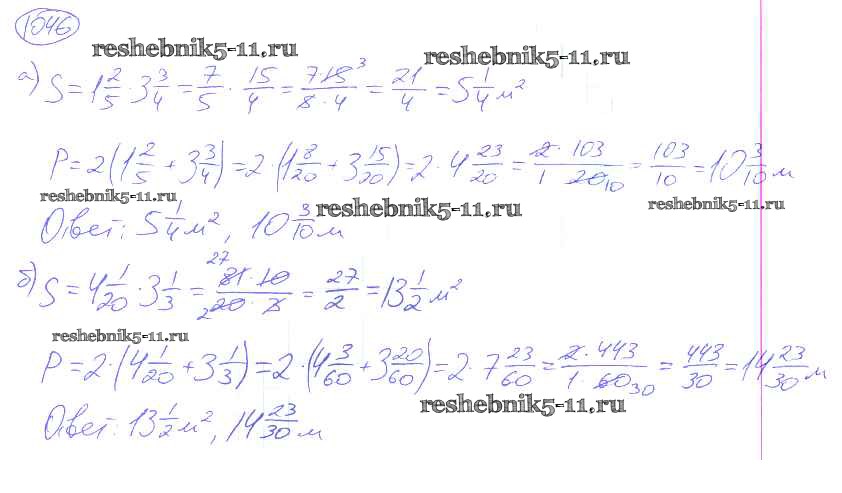 1046
reshebnik5-11.ru reshebnik5-11.ru
а) S = 1 2/5 · 3 3/4 = 7/5 · 15/4 = 7·15 3/5·4 = 21/4 = 5 1/4 м²
P = 2(1 2/5 + 3 3/4) = 2·(1 8/20 + 3 15/20) = 2·4 23/20 = 2·103/1 20 10 = 103/10 = 10 3/10 м
reshebnik5-11.ru reshebnik5-11.ru reshebnik5-11.ru
Ответ: 5 1/4 м², 10 3/10 м
б) S = 4 1/20 · 3 1/3 = 27 81·10/2 20·3 = 27/2 = 13 1/2 м²
reshebnik5-11.ru
P = 2·(4 1/20 + 3 1/3) = 2·(4 3/60 + 3 20/60) = 2·7 23/60 = 2·443/1·60 30 = 443/30 = 14 23/30 м
reshebnik5-11.ru
Ответ: 13 1/2 м², 14 23/30 м